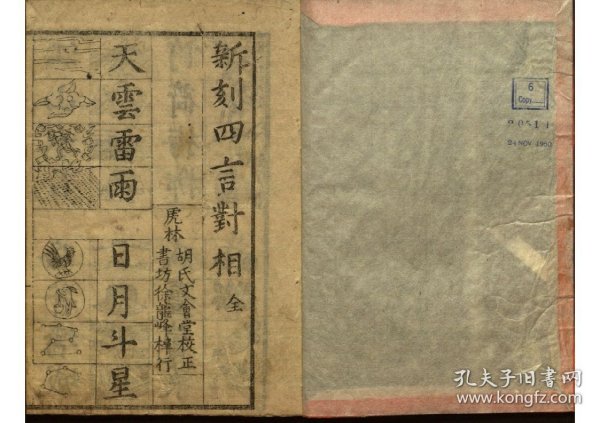 新刻四言對相 全
虎林 胡氏文會堂校正
書坊徐龍峰梓行
天雲雷雨
日月斗星
6
Copy
24 NOV 1960
孔夫子旧书网
www.kongfz.com